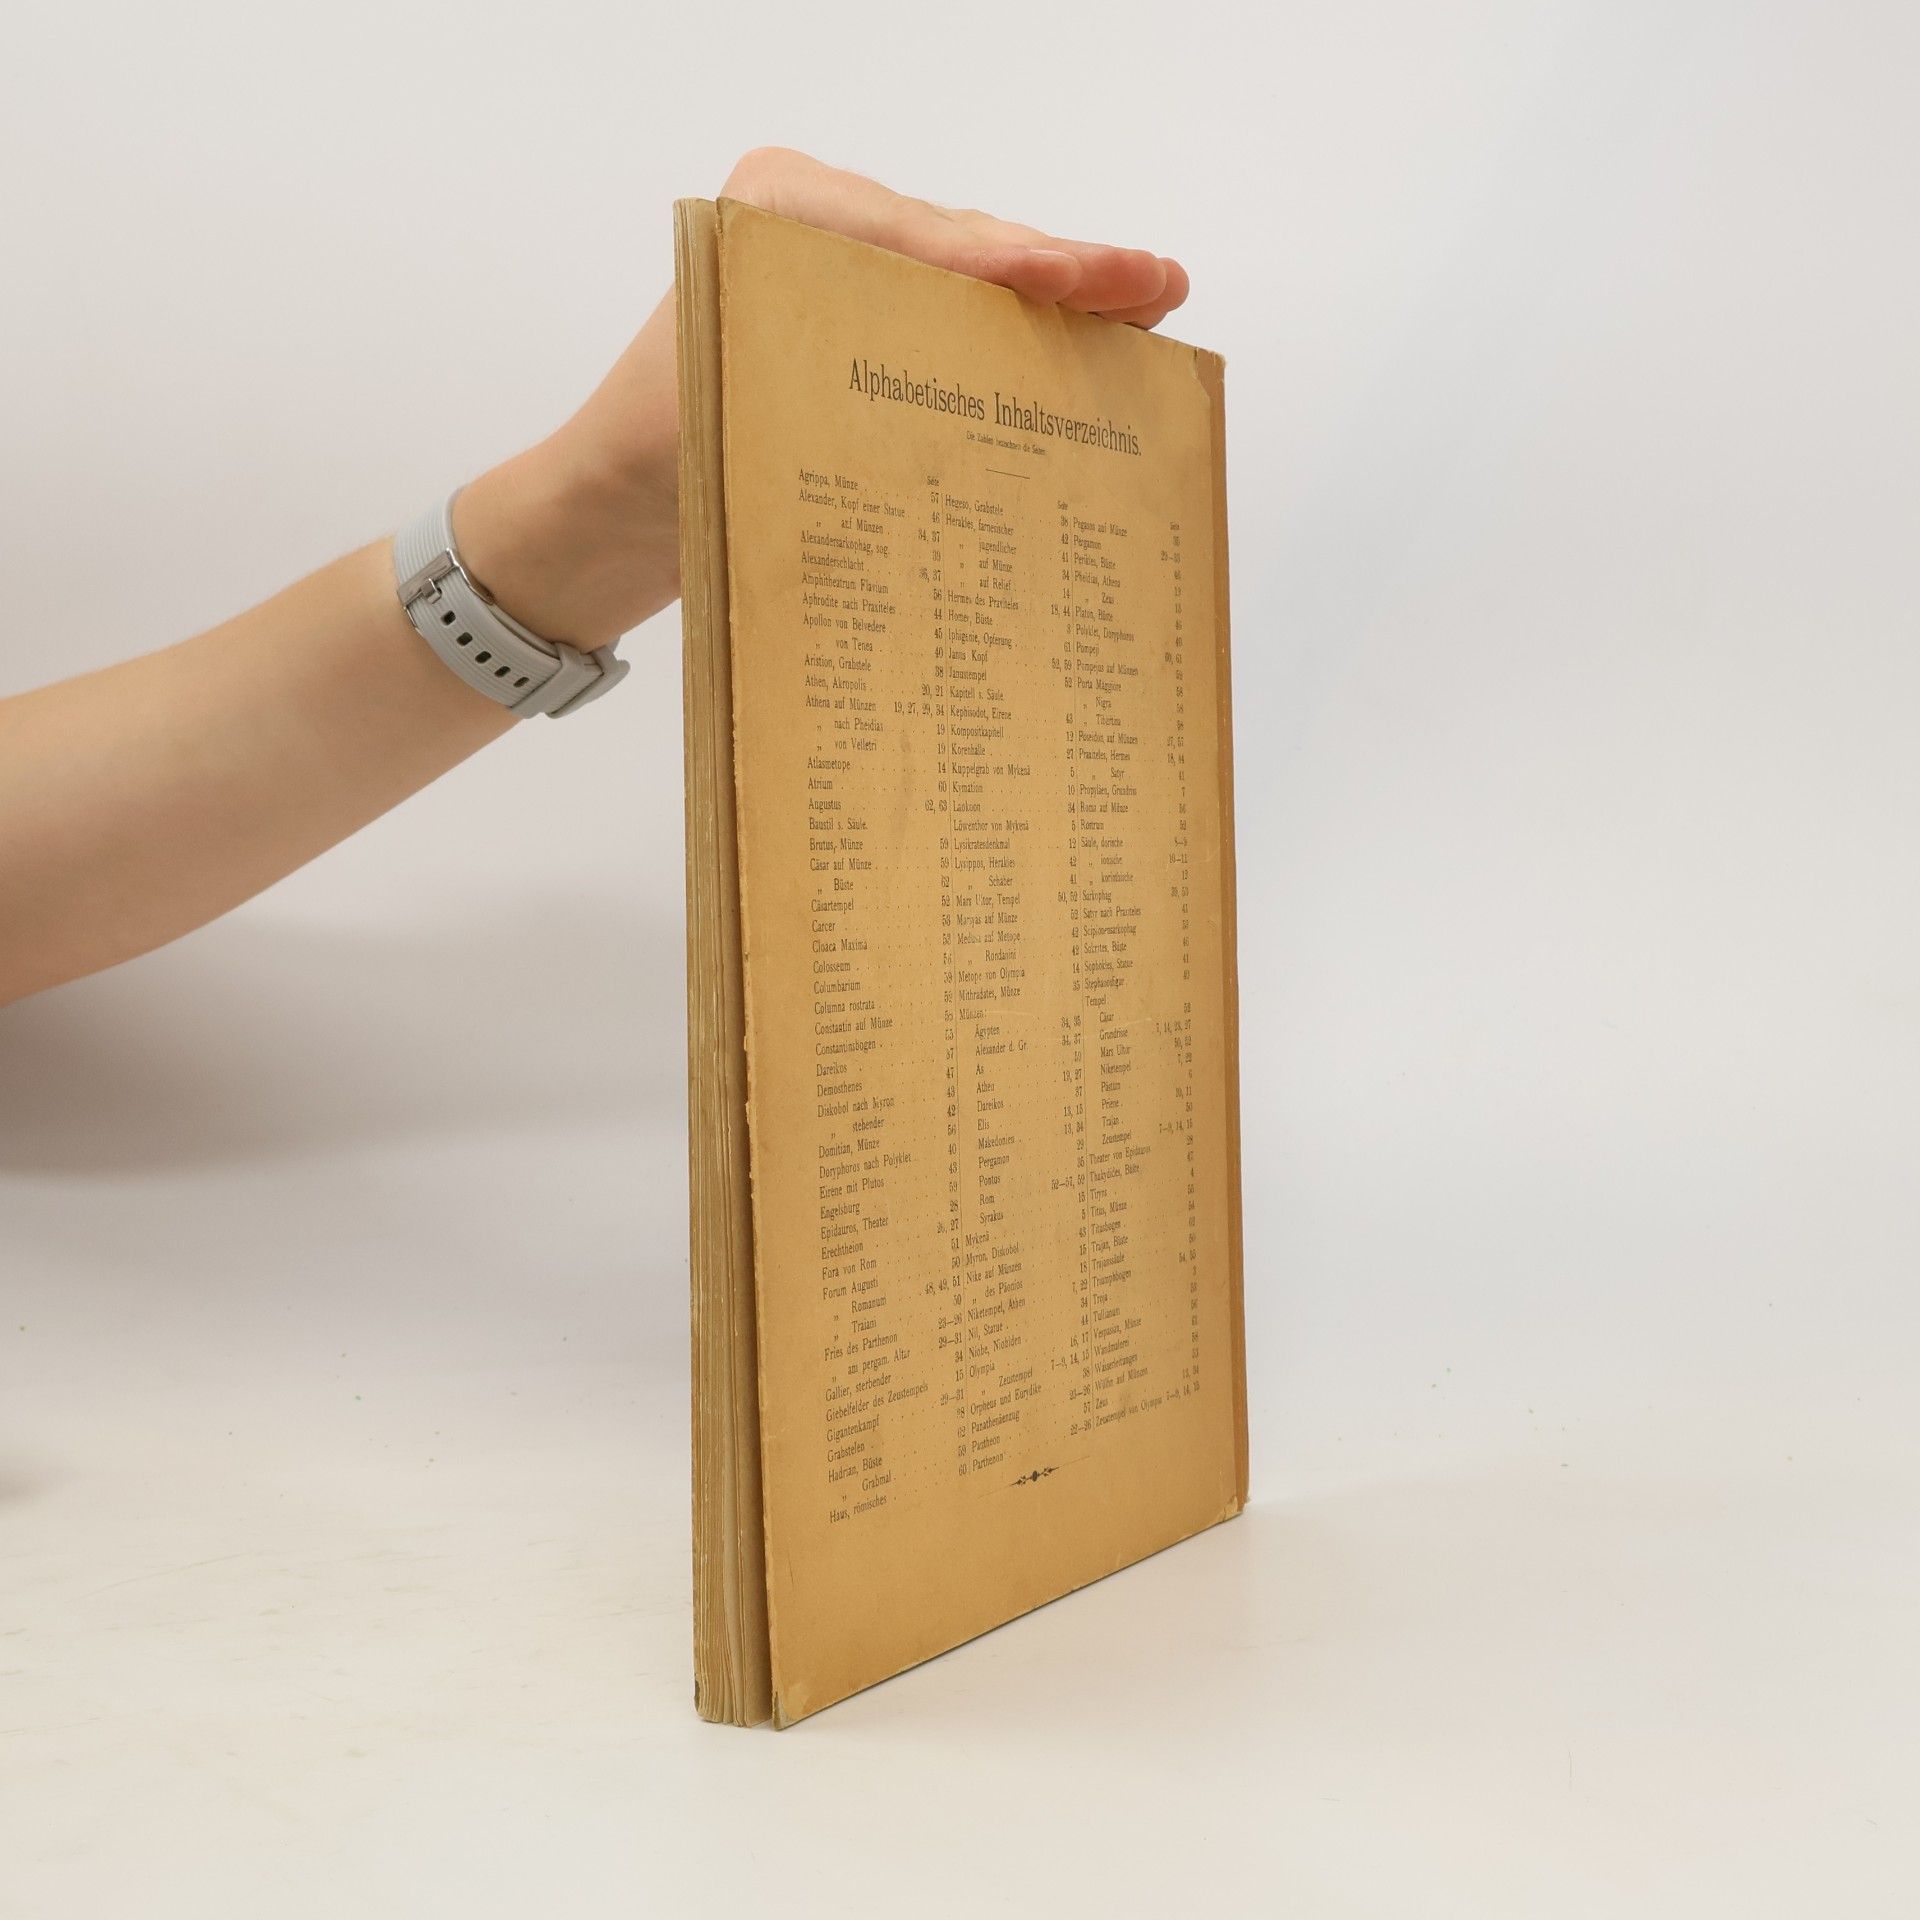 Alphabetisches Inhaltsverzeichnis.
Die Zahlen bezeichnen die Seiten
Seite
Agrippa, Münze 57
Alexander, Kopf einer Statue 46
„ auf Münzen 34, 37
Alexandersarkophag, sog. 39
Alexanderschlacht 36, 37
Amphitheatrum Flavium 56
Aphrodite nach Praxiteles 44
Apollon von Belvedere 45
„ von Tenea 40
Aristion, Grabstele 38
Athen, Akropolis 20, 21
Athena auf Münzen 19, 27, 29, 34
„ nach Pheidias 19
„ von Velletri 19
Atlasmetope 14
Atrium 60
Augustus 62, 63
Baustil s. Säule.
Brutus, Münze 59
Cäsar auf Münze 59
„ Büste 62
Cäsartempel 52
Carcer 53
Cloaca Maxima 53
Colosseum 56
Columbarium 59
Columna rostrata 52
Constantin auf Münze 56
Constantinsbogen 55
Dareikos 37
Demosthenes 47
Diskobol nach Myron 43
„ stehender 42
Domitian, Münze 56
Doryphoros nach Polyklet 40
Eirene mit Plutos 43
Engelsburg 59
Epidauros, Theater 28
Erechtheion 26, 27
Fora von Rom 51
Forum Augusti 50
„ Romanum 48, 49, 51
„ Traiani 50
Fries des Parthenon 23—26
„ am pergam. Altar 29—31
Gallier, sterbender 34
Giebelfelder des Zeustempels 15
Gigantenkampf 29—31
Grabstelen 38
Hadrian, Büste 62
„ Grabmal 59
Haus, römisches 60
Seite
Hegeso, Grabstele 38
Herakles, farnesischer 42
„ jugendlicher 41
„ auf Münze 34
„ auf Relief 14
Hermes des Praxiteles 18, 44
Homer, Büste 3
Iphigenie, Opferung 61
Janus Kopf 52, 59
Janustempel 52
Kapitell s. Säule.
Kephisodot, Eirene 43
Kompositkapitell 12
Korenhalle 27
Kuppelgrab von Mykenä 5
Kymation 10
Laokoon 34
Löwenthor von Mykenä 5
Lysikratesdenkmal 12
Lysippos, Herakles 42
„ Schaber 41
Mars Ultor, Tempel 50, 52
Marsyas auf Münze 52
Medusa auf Metope 42
„ Rondanini 42
Metope von Olympia 14
Mithradates, Münze 35
Münzen:
Ägypten 34, 35
Alexander d. Gr. 34, 37
As 59
Athen 19, 27
Dareikos 37
Elis 13, 18
Makedonien 13, 34
Pergamon 29
Pontus 35
Rom 52—57, 59
Syrakus 15
Mykenä 5
Myron, Diskobol 43
Nike auf Münzen 15
„ des Päonios 18
Niketempel, Athen 7, 22
Nil, Statue 34
Niobe, Niobiden 44
Olympia 16, 17
„ Zeustempel 7—9, 14, 15
Orpheus und Eurydike 38
Panathenäenzug 23—26
Pantheon 57
Parthenon 22—26
Seite
Pegasos auf Münze 35
Pergamon 29—33
Perikles, Büste 46
Pheidias, Athena 19
„ Zeus 13
Platon, Büste 46
Polyklet, Doryphoros 40
Pompeji 60, 61
Pompejus auf Münzen 59
Porta Maggiore 58
„ Nigra 58
„ Tiburtina 58
Poseidon auf Münzen 27, 57
Praxiteles, Hermes 18, 44
„ Satyr 41
Propyläen, Grundriss 7
Roma auf Münze 56
Rostrum 52
Säule, dorische 8—9
„ ionische 10—11
„ korinthische 12
Sarkophag 39, 53
Satyr nach Praxiteles 41
Scipionensarkophag 53
Sokrates, Büste 46
Sophokles, Statue 41
Stephanosfigur 40
Tempel
Cäsar 52
Grundrisse 7, 14, 23, 27
Mars Ultor 50, 52
Niketempel 7, 22
Pästum 6
Priene 10, 11
Trajan 50
Zeustempel 7—9, 14, 15
Theater von Epidauros 28
Thukydides, Büste 47
Tiryns 4
Titus, Münze 55
Titusbogen 54
Trajan, Büste 62
Trajanssäule 50
Triumphbogen 54, 55
Troja 3
Tullianum 53
Vespasian, Münze 56
Wandmalerei 61
Wasserleitungen 58
Wölfin auf Münzen 53
Zeus 13, 34
Zeustempel von Olympia 7—9, 14, 15